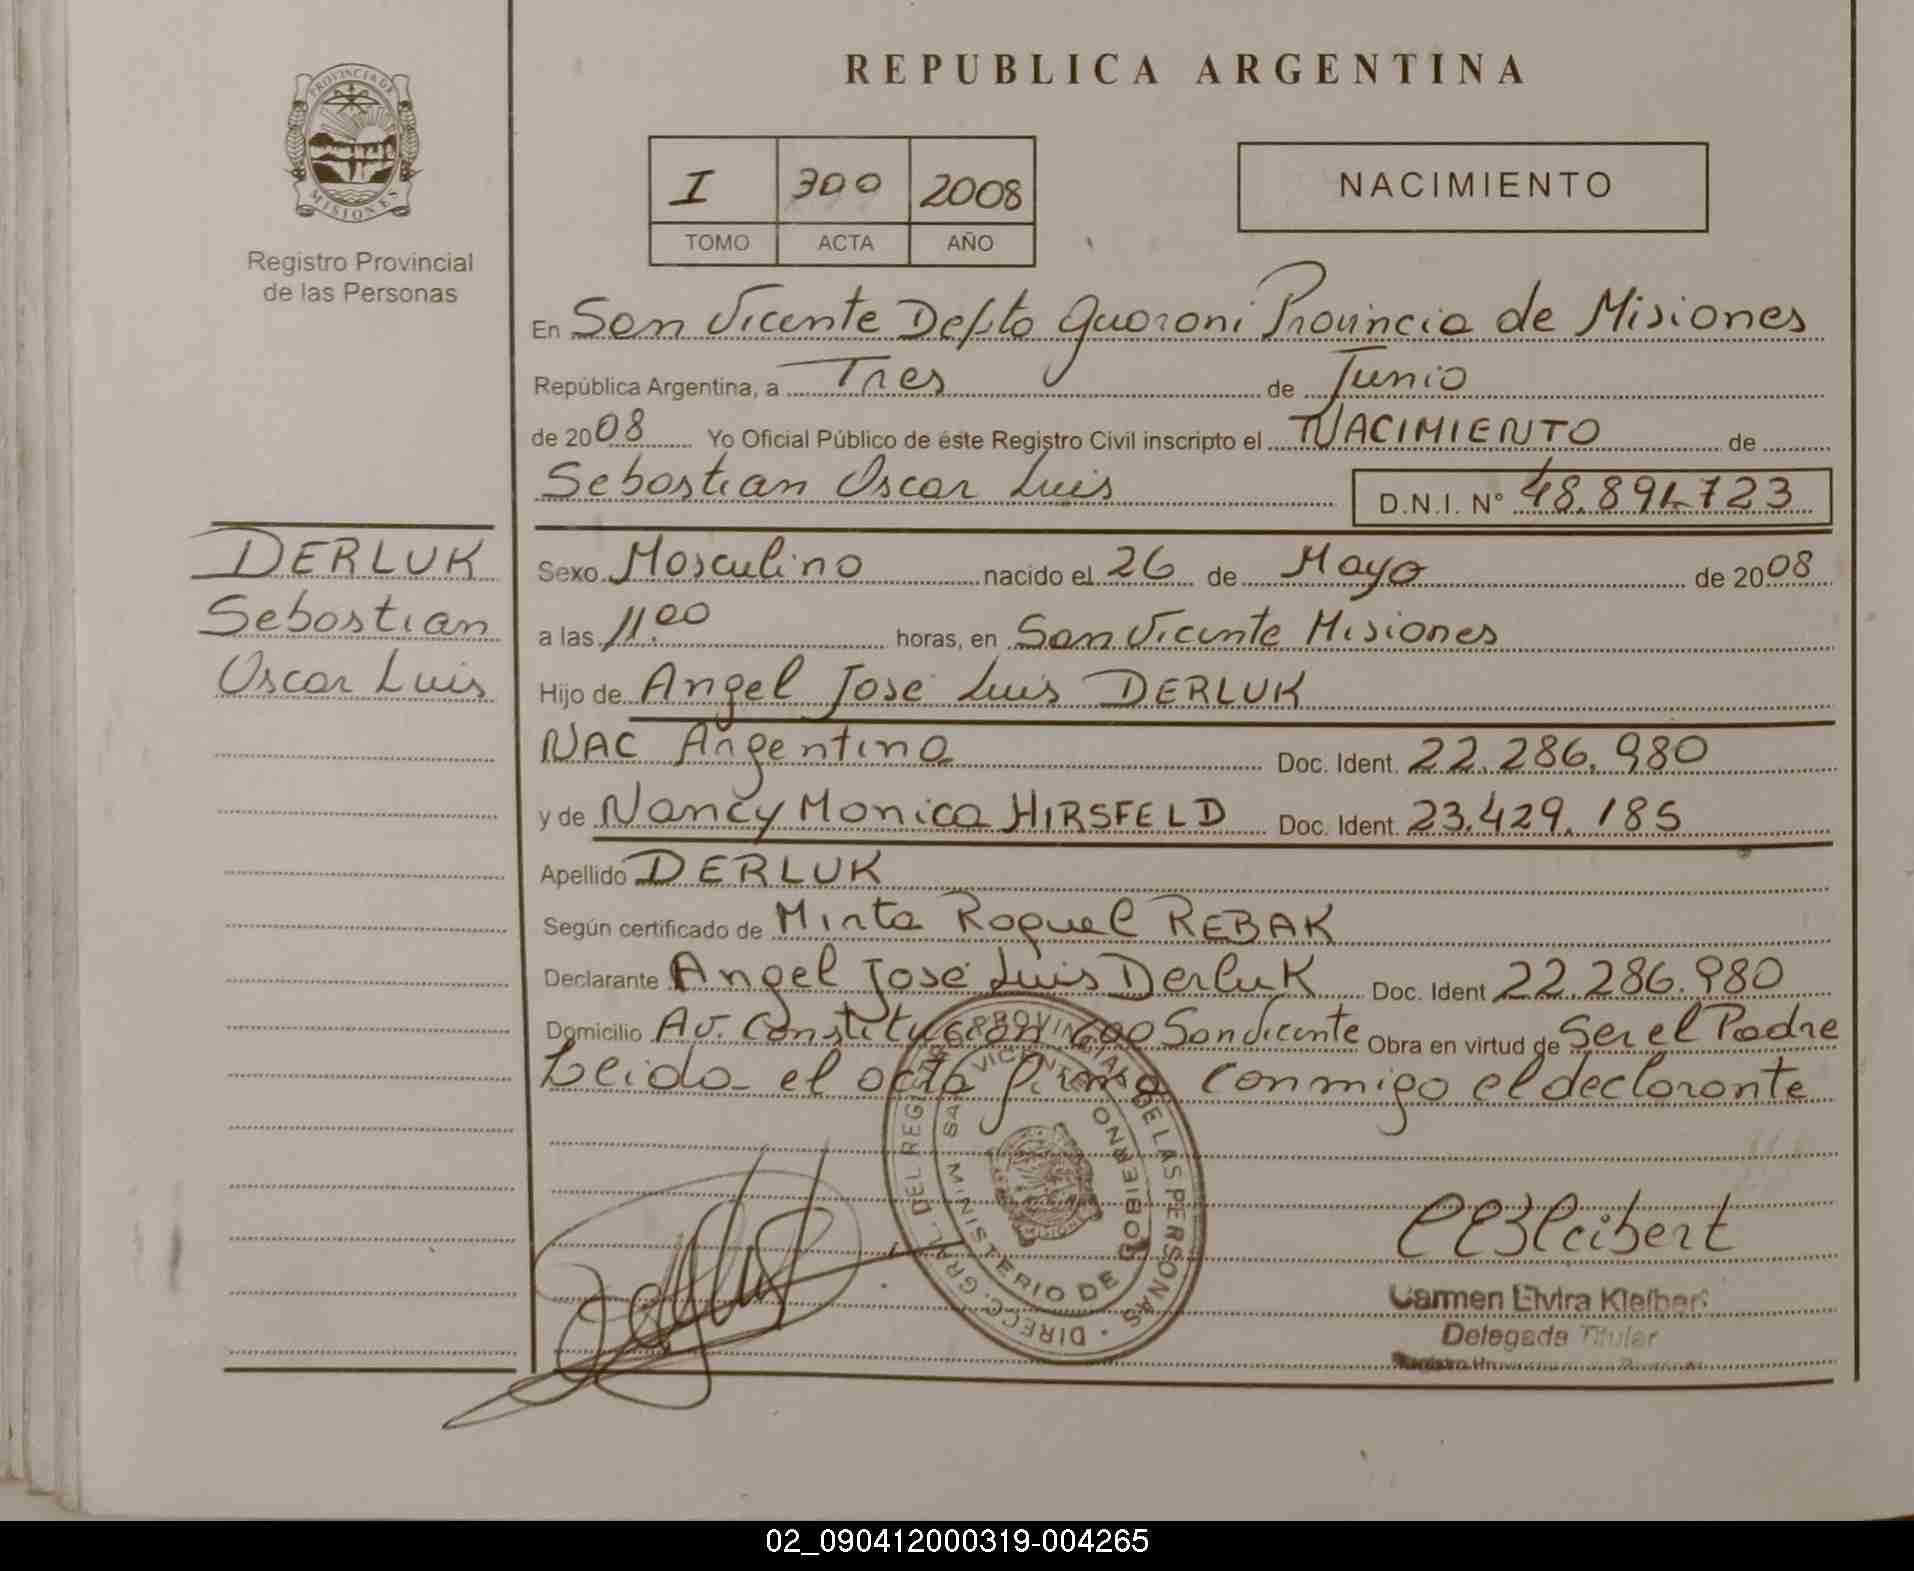 REPUBLICA ARGENTINA
PROVINCIA DE
MISIONES
Registro Provincial
de las Personas
I 300 2008
TOMO ACTA AÑO
NACIMIENTO
En San Vicente Depto Guarani Provincia de Misiones
República Argentina, a Tres de Junio
de 2008 Yo Oficial Público de éste Registro Civil inscripto el NACIMIENTO de
Sebastian Oscar Luis
D.N.I. N°
DERLUK
Sebastian
Oscar Luis
Sexo Masculino nacido el 26 de Mayo de 2008
a las 11.00 horas, en San Vicente Misiones
Hijo de Angel Jose Luis DERLUK
NAC Argentina Doc. Ident. 22.286.980
y de Nancy Monica HIRSFELD Doc. Ident. 23.429.185
Apellido DERLUK
Según certificado de Mirta Raquel REBAK
Declarante Angel José Luis Derluk Doc. Ident 22.286.980
Domicilio Av. Constitucion 600 San Vicente Obra en virtud de Ser el Padre
Leida el acta firma conmigo el declarante
DIRECC. GRAL. DEL REGISTRO PROVINCIAL DE LAS PERSONAS
SAN VICENTE
MINISTERIO DE GOBIERNO
CEKleibert
Carmen Elvira Kleibert
Delegada Titular
02_090412000319-004265